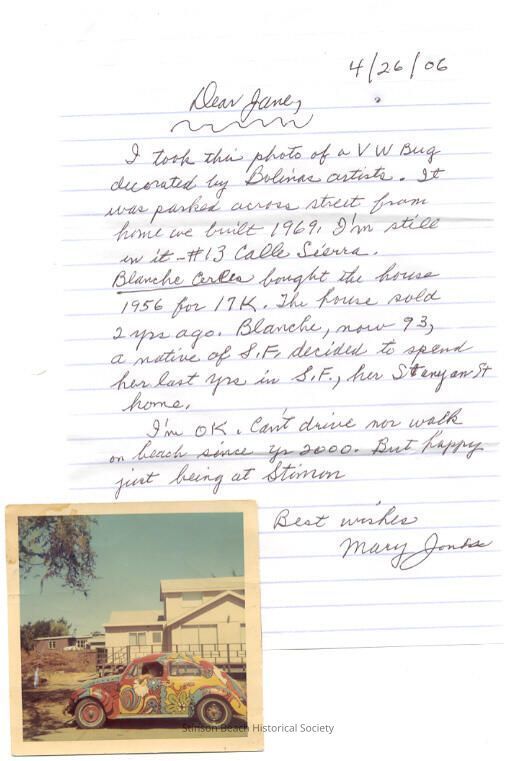 4/26/06
Dear Jane,
I took this photo of a VW Bug
decorated by Bolinas artists. It
was parked across street from
home we built 1969. I'm still
in it - #13 Calle Sierra.
Blanche bought the house
1956 for 17K. The house sold
2 yrs ago. Blanche, now 93,
a native of S.F. decided to spend
her last yrs in S.F., her Stanyan St
home.
I'm OK. Can't drive nor walk
on beach since yr 2000. But happy
just being at Stinson
Best wishes
Mary Jones
Stinson Beach Historical Society